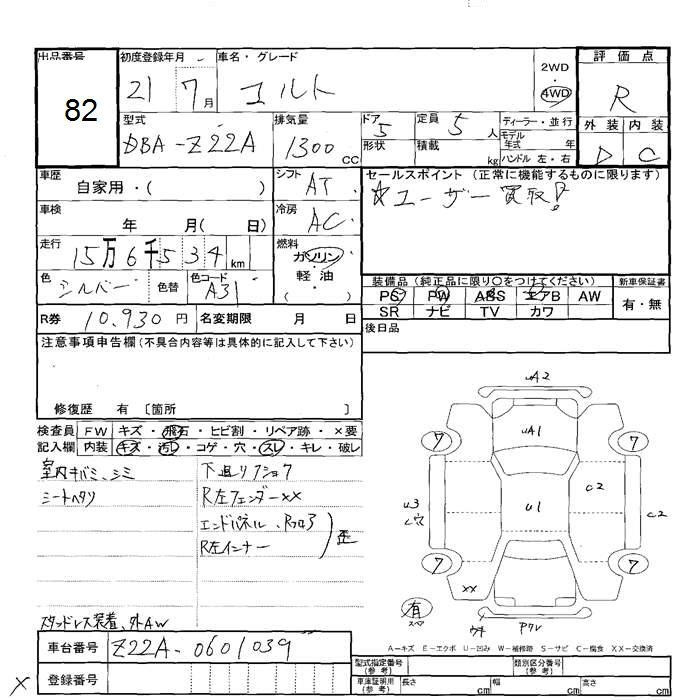 出品番号 82
初度登録年月 21 7月
車名・グレード コルト
2WD
・
4WD
評価点 R
外装 内装
D C
型式 DBA-Z22A
排気量 1300cc
ドア 5
形状
定員 5人
積載 kg
ディーラー・並行
モデル年式 年
ハンドル 左・右
車歴 自家用・( )
シフト AT
セールスポイント(正常に機能するものに限ります)
☆ユーザー買取!
車検 年 月( 日)
冷房 AC
走行 15万6千534km
燃料 ガソリン・軽油・( )
色 シルバー 色替
色コード A31
装備品(純正品に限り○をつけてください)
新車保証書
PS PW ABS エアB AW
有・無
SR ナビ TV カワ
R券 10,930円
名変期限 月 日
後日品
注意事項申告欄(不具合内容等は具体的に記入して下さい)
修復歴 有 〔箇所 〕
検査員記入欄
FW キズ・飛石・ヒビ割・リペア跡・×要
内装 キズ・汚レ・コゲ・穴・スレ・キレ・破レ
室内キバミ、シミ
シートヘタリ
下廻リサビ
R左フェンダーXX
エンドパネル、Rフロア
R左インナー
歪
スタッドレス装着、外AW
車台番号 Z22A-0601039
登録番号
X
uA2
uA1
7
7
u3
c穴
u1
c2
c2
7
7
xx
有
スペア
ワレ
A-キズ E-エクボ U-凹み W-補修跡 S-サビ C-腐食 XX-交換済
型式指定番号(参考)
類別区分番号(参考)
車庫証明用(参考) 長さ cm 幅 cm 高さ cm